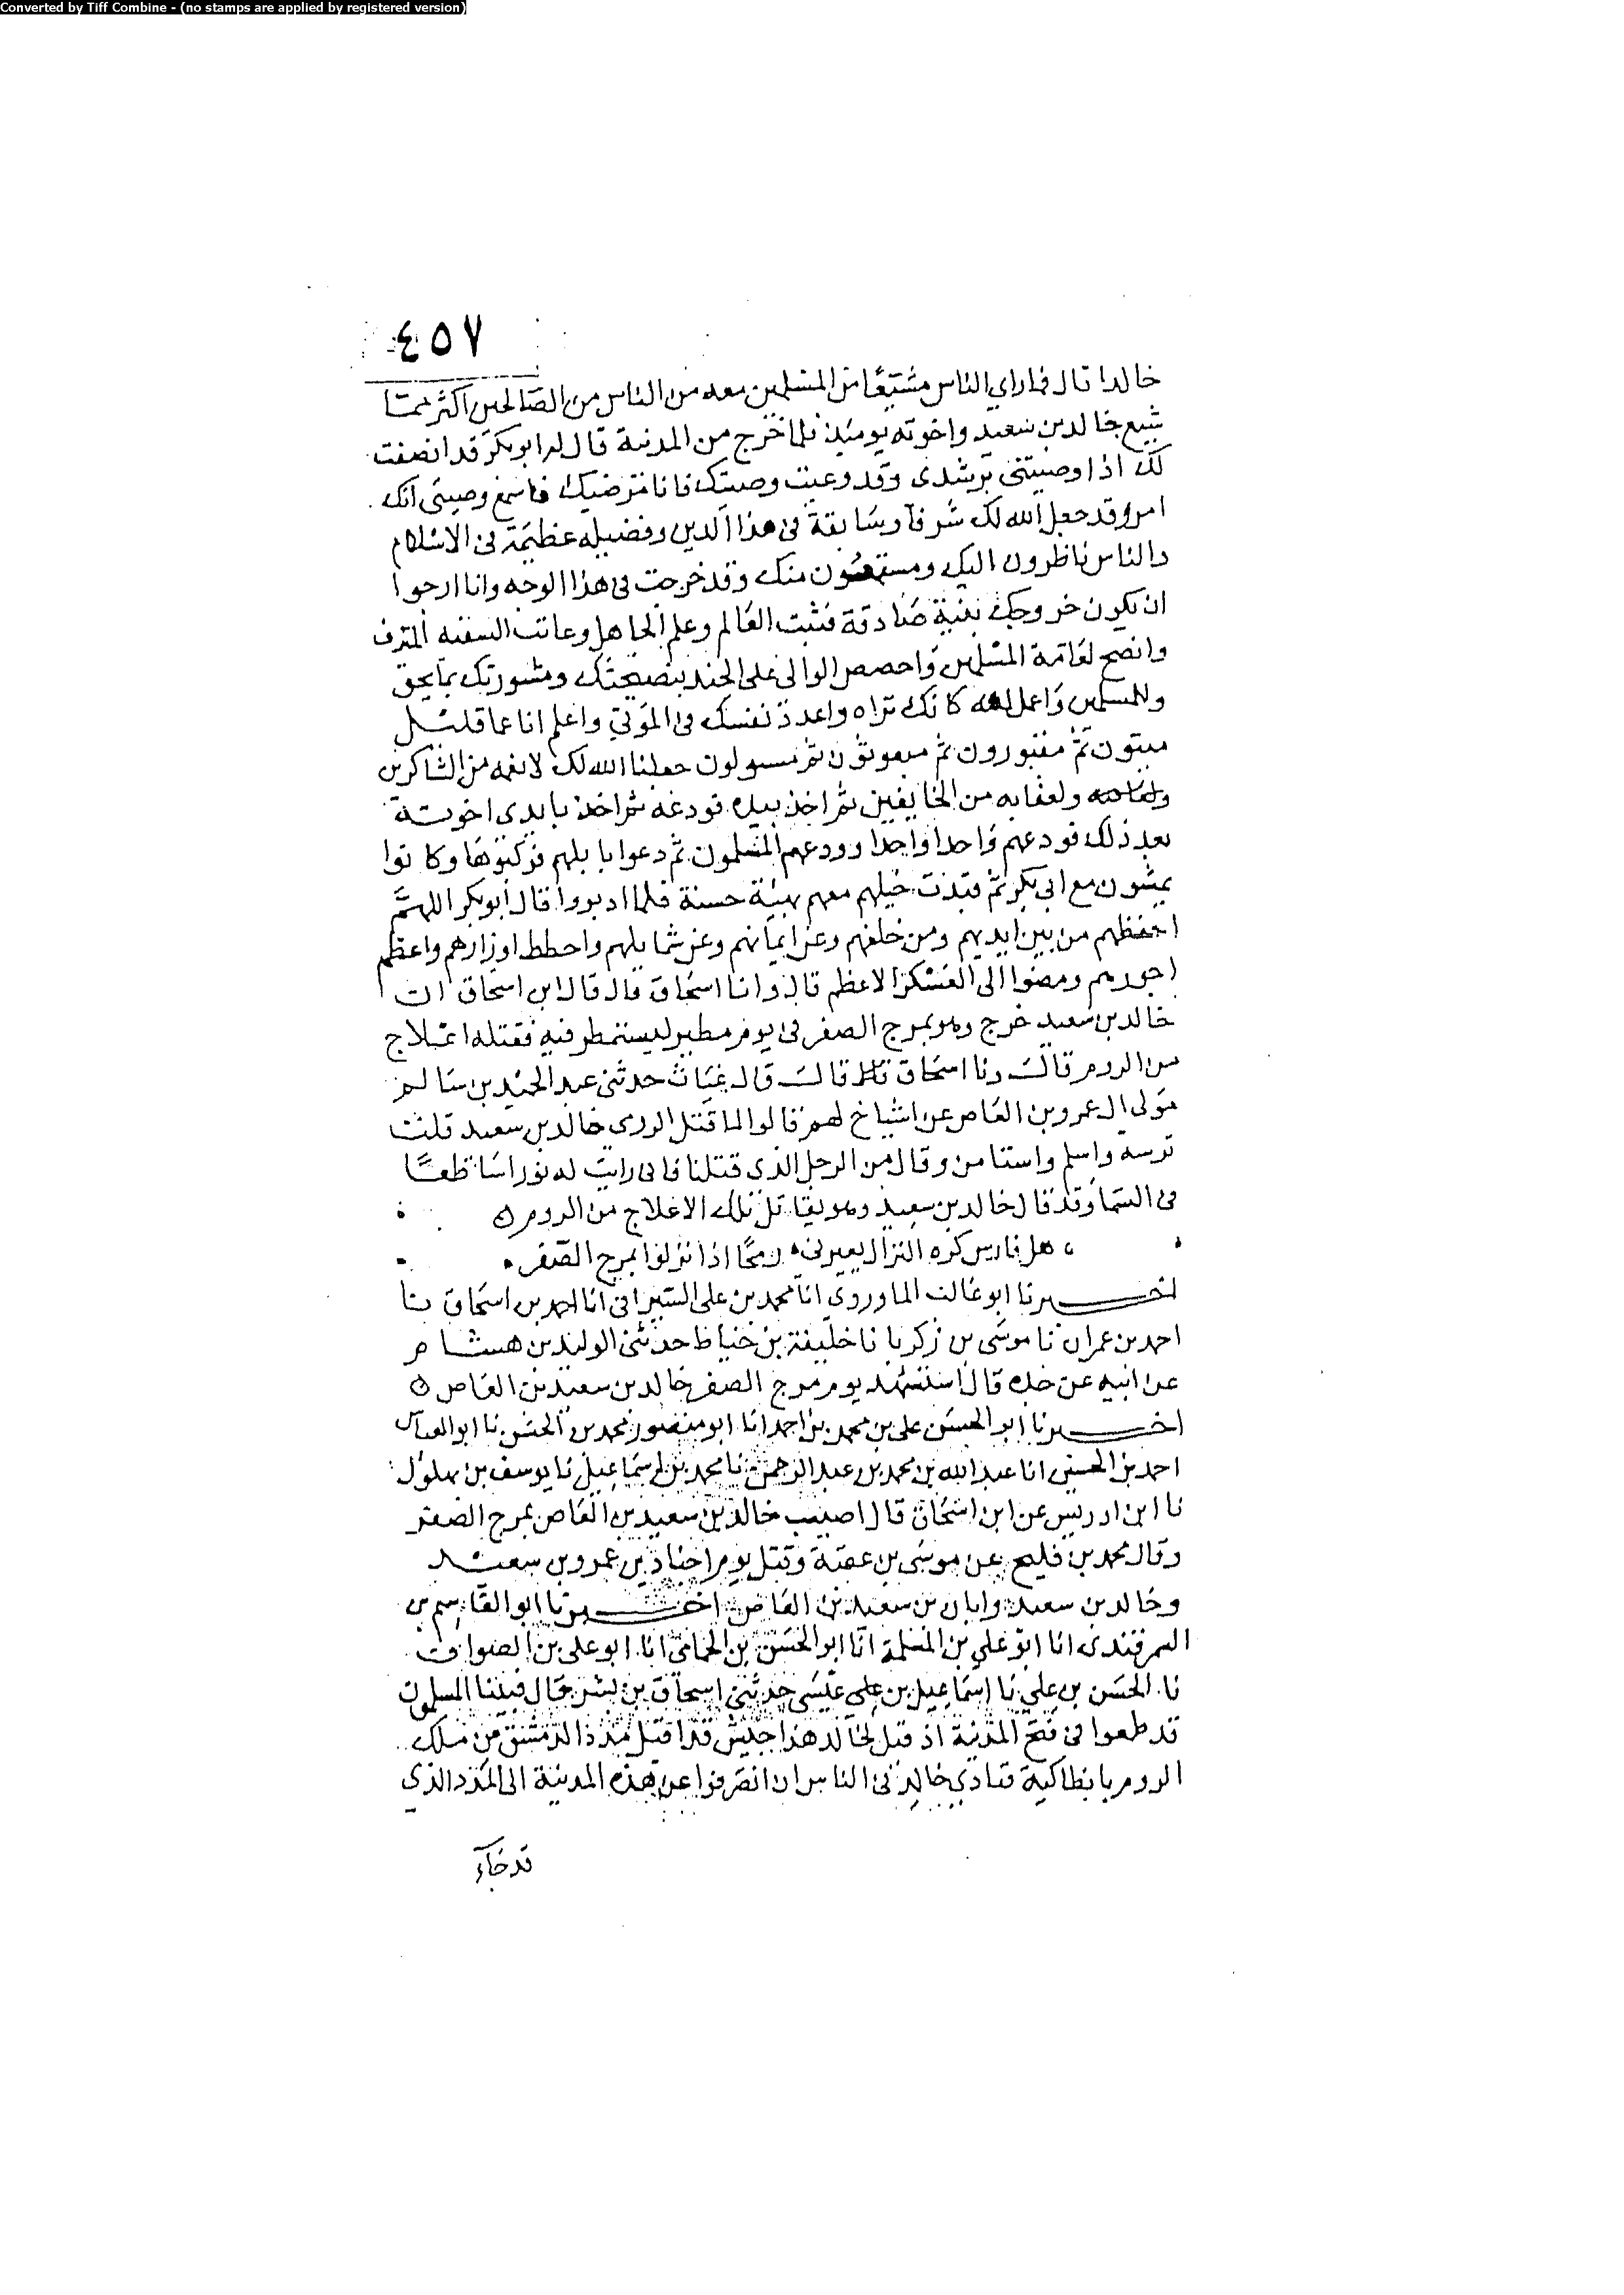 Converted by Tiff Combine - (no stamps are applied by registered version)
٤٥٧
خالدا قال فما راي الناس مشيعًا من المسلمين معه من الناس من الصالحين اكثر ممّا
شيع خالد بن سعيد واخوته يومئذ فلما خرج من المدينة قال له ابو بكر قد انصفت
لك اذا وصيتني برشدى وقد وعيت وصيتك فانا موصيك فاسمع وصيتى انك
امرؤ قد جعل الله لك شرفا وسابقة فى هذا الدين وفضيله عظيمة فى الاسلام
والناس ناظرون اليك ومستمعون منك وقد خرجت فى هذا الوجه وانا ارجوا
ان يكون خروجك بنية صادقة فثبت العالم وعلم الجاهل وعاتب السفيه المترف
وانصح لعامة المسلمين واخصص الوالى على الجند بنصيحتك ومشورتك بما يحق
وللمسلمين واعمل لله كانك تراه واعدد نفسك فى الموتى واعلم انا عما قليل
ميتون ثم مقبورون ثم مبعوثون ثم مسولون جعلنا الله لك لانعمه من الشاكرين
ولعقابه من الخايفين ثم اخذ بيده فودعه ثم اخذ بايدى اخوته
بعد ذلك فودعهم واحدا واحدا وودعهم المسلمون ثم دعوا بابلهم فركبوها وكانوا
يمشون مع ابى بكر ثم قيدت خيلهم معهم بهيئة حسنة فلما ادبروا قال ابو بكر اللهمّ
احفظهم من بين ايديهم ومن خلفهم وعن ايمانهم وعن شمايلهم واحطط اوزارهم واعظم
اجورهم ومضوا الى العسكر الاعظم قال وانا اسحاق قال قال ابن اسحاق ان
خالد بن سعيد خرج وهو بمرج الصفر فى يوم مطير ليستمطر فيه فقتله اعلاج
من الروم قال ونا اسحاق قال قال غياث حدثنى عبد الحميد بن سالم
مولى ال عمرو بن العاص عن اشياخ لهم قالوا لما قتل الرومى خالد بن سعيد قلب
ترسه واسلم واستامن وقال من الرجل الذى قتلنا فانى رايت له نورا ساطعًا
فى السما وقد قال خالد بن سعيد وهو يقاتل تلك الاعلاج من الروم
هل فارس كره النزال يعيرنى رمحًا اذا نزلوا بمرج الصّفر
اخبرنا ابو غالب الماوردى انا محمد بن على السيرافى انا احمد بن اسحاق نا
احمد بن عمران نا موسى بن زكريا نا خليفة بن خياط حدثنى الوليد بن هشام
عن ابيه عن جده قال استشهد يوم مرج الصفر خالد بن سعيد بن العاص
اخبرنا ابو الحسن على بن محمد بن احمد انا ابو منصور محمد بن الحسن نا ابو العباس
احمد بن الحسين انا عبد الله بن محمد بن عبد الرحمن نا محمد بن اسماعيل نا يوسف بن بهلول
نا ابن ادريس عن ابن اسحاق قال اصيب خالد بن سعيد بن العاص بمرج الصفر
وقال محمد بن فليح عن موسى بن عقبة وقتل يوم اجنادين عمرو بن سعيد
وخالد بن سعيد وابان بن سعيد بن العاص اخبرنا ابو القاسم بن
السمرقندى انا ابو على بن المسلمة انا ابو الحسن بن الحمامى انا ابو على بن الصواف
نا الحسن بن علي نا اسماعيل بن عيسى حدثنى اسحاق بن بشر قال فبينا المسلمون
قد طمعوا فى فتح المدينة اذ قيل لخالد هذا جيش قد اقبل مددا لدمشق من ملك
الروم بانطاكية فنادي خالد فى الناس ان انصرفوا عن هذه المدينة الى المدد الذي
قد جآء